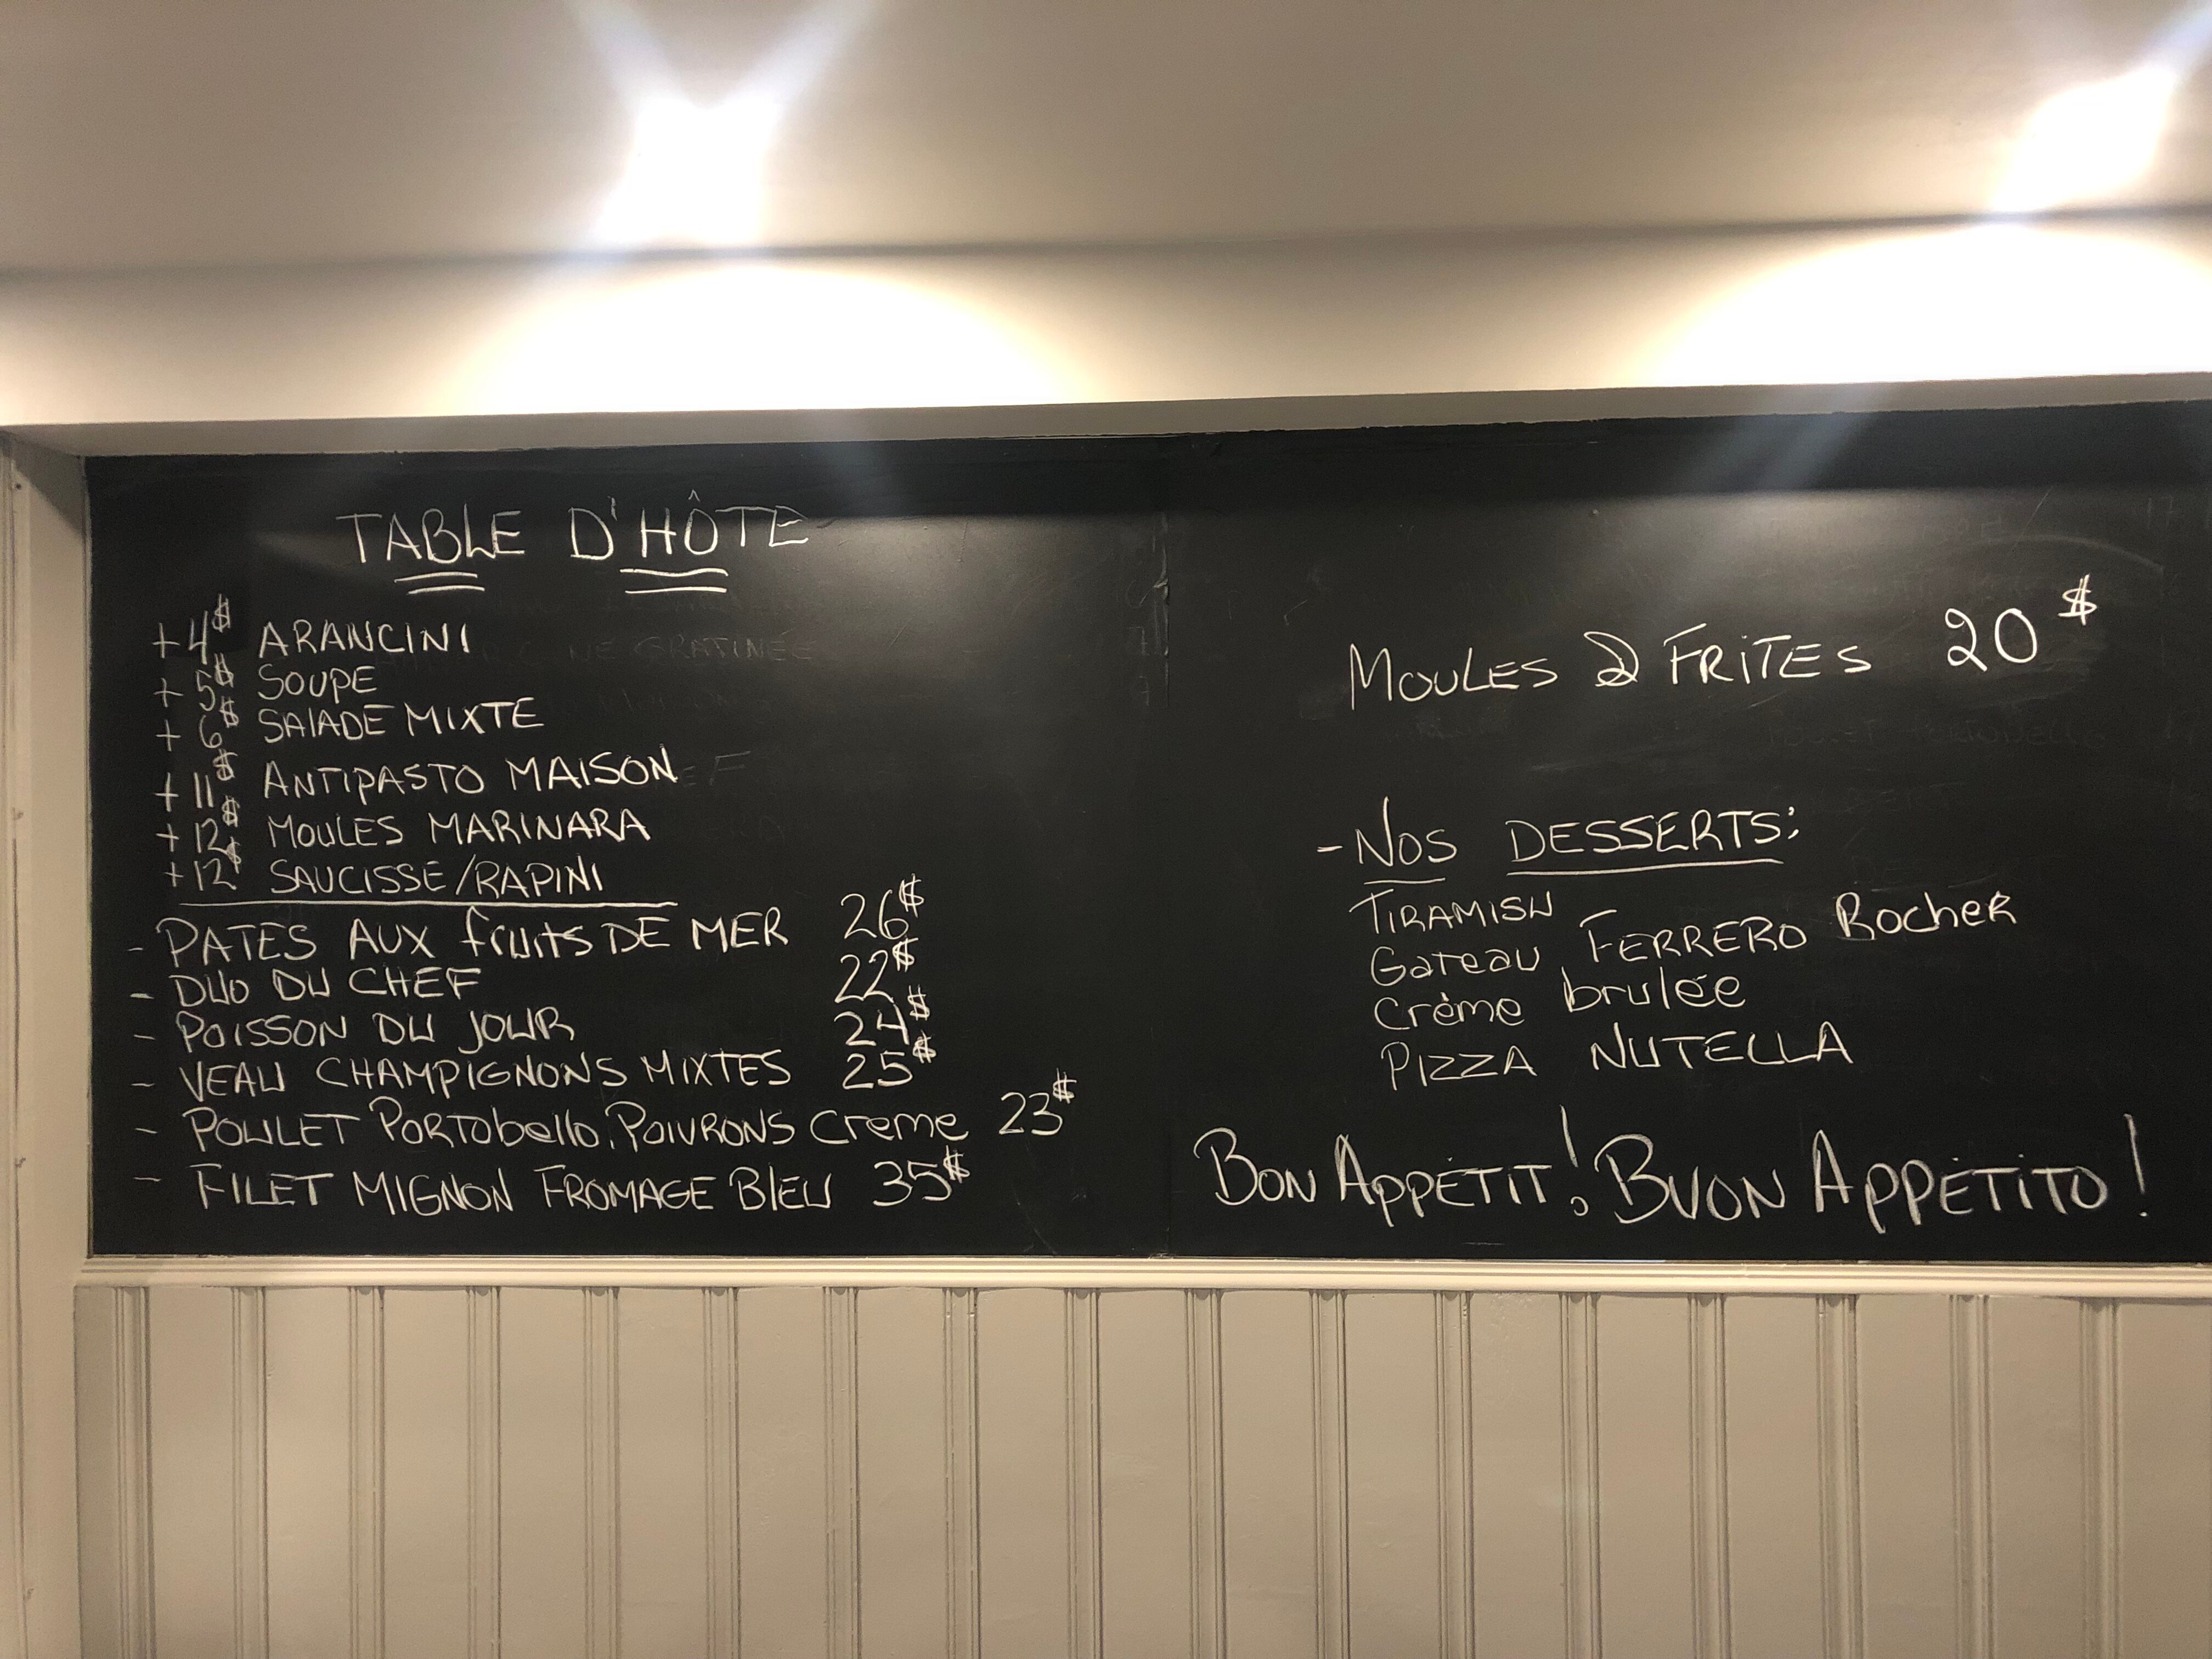 TABLE D'HÔTE
+4$ ARANCINI
+5$ SOUPE
+6$ SALADE MIXTE
+11$ ANTIPASTO MAISON
+12$ MOULES MARINARA
+12$ SAUCISSE/RAPINI
- PATES AUX fruits DE MER 26$
- DUO DU CHEF 22$
- POISSON DU JOUR 24$
- VEAU CHAMPIGNONS MIXTES 25$
- POULET PORTobello, POIVRONS Creme 23$
- FILET MIGNON FROMAGE BlEU 35$
MOULES & FRITES 20$
- NOS DESSERTS:
TIRAMISU
Gateau FERRERO RocheR
Crème brulée
PIZZA NUTELLA
BON APPÉTIT! BUON APPÉTITO!